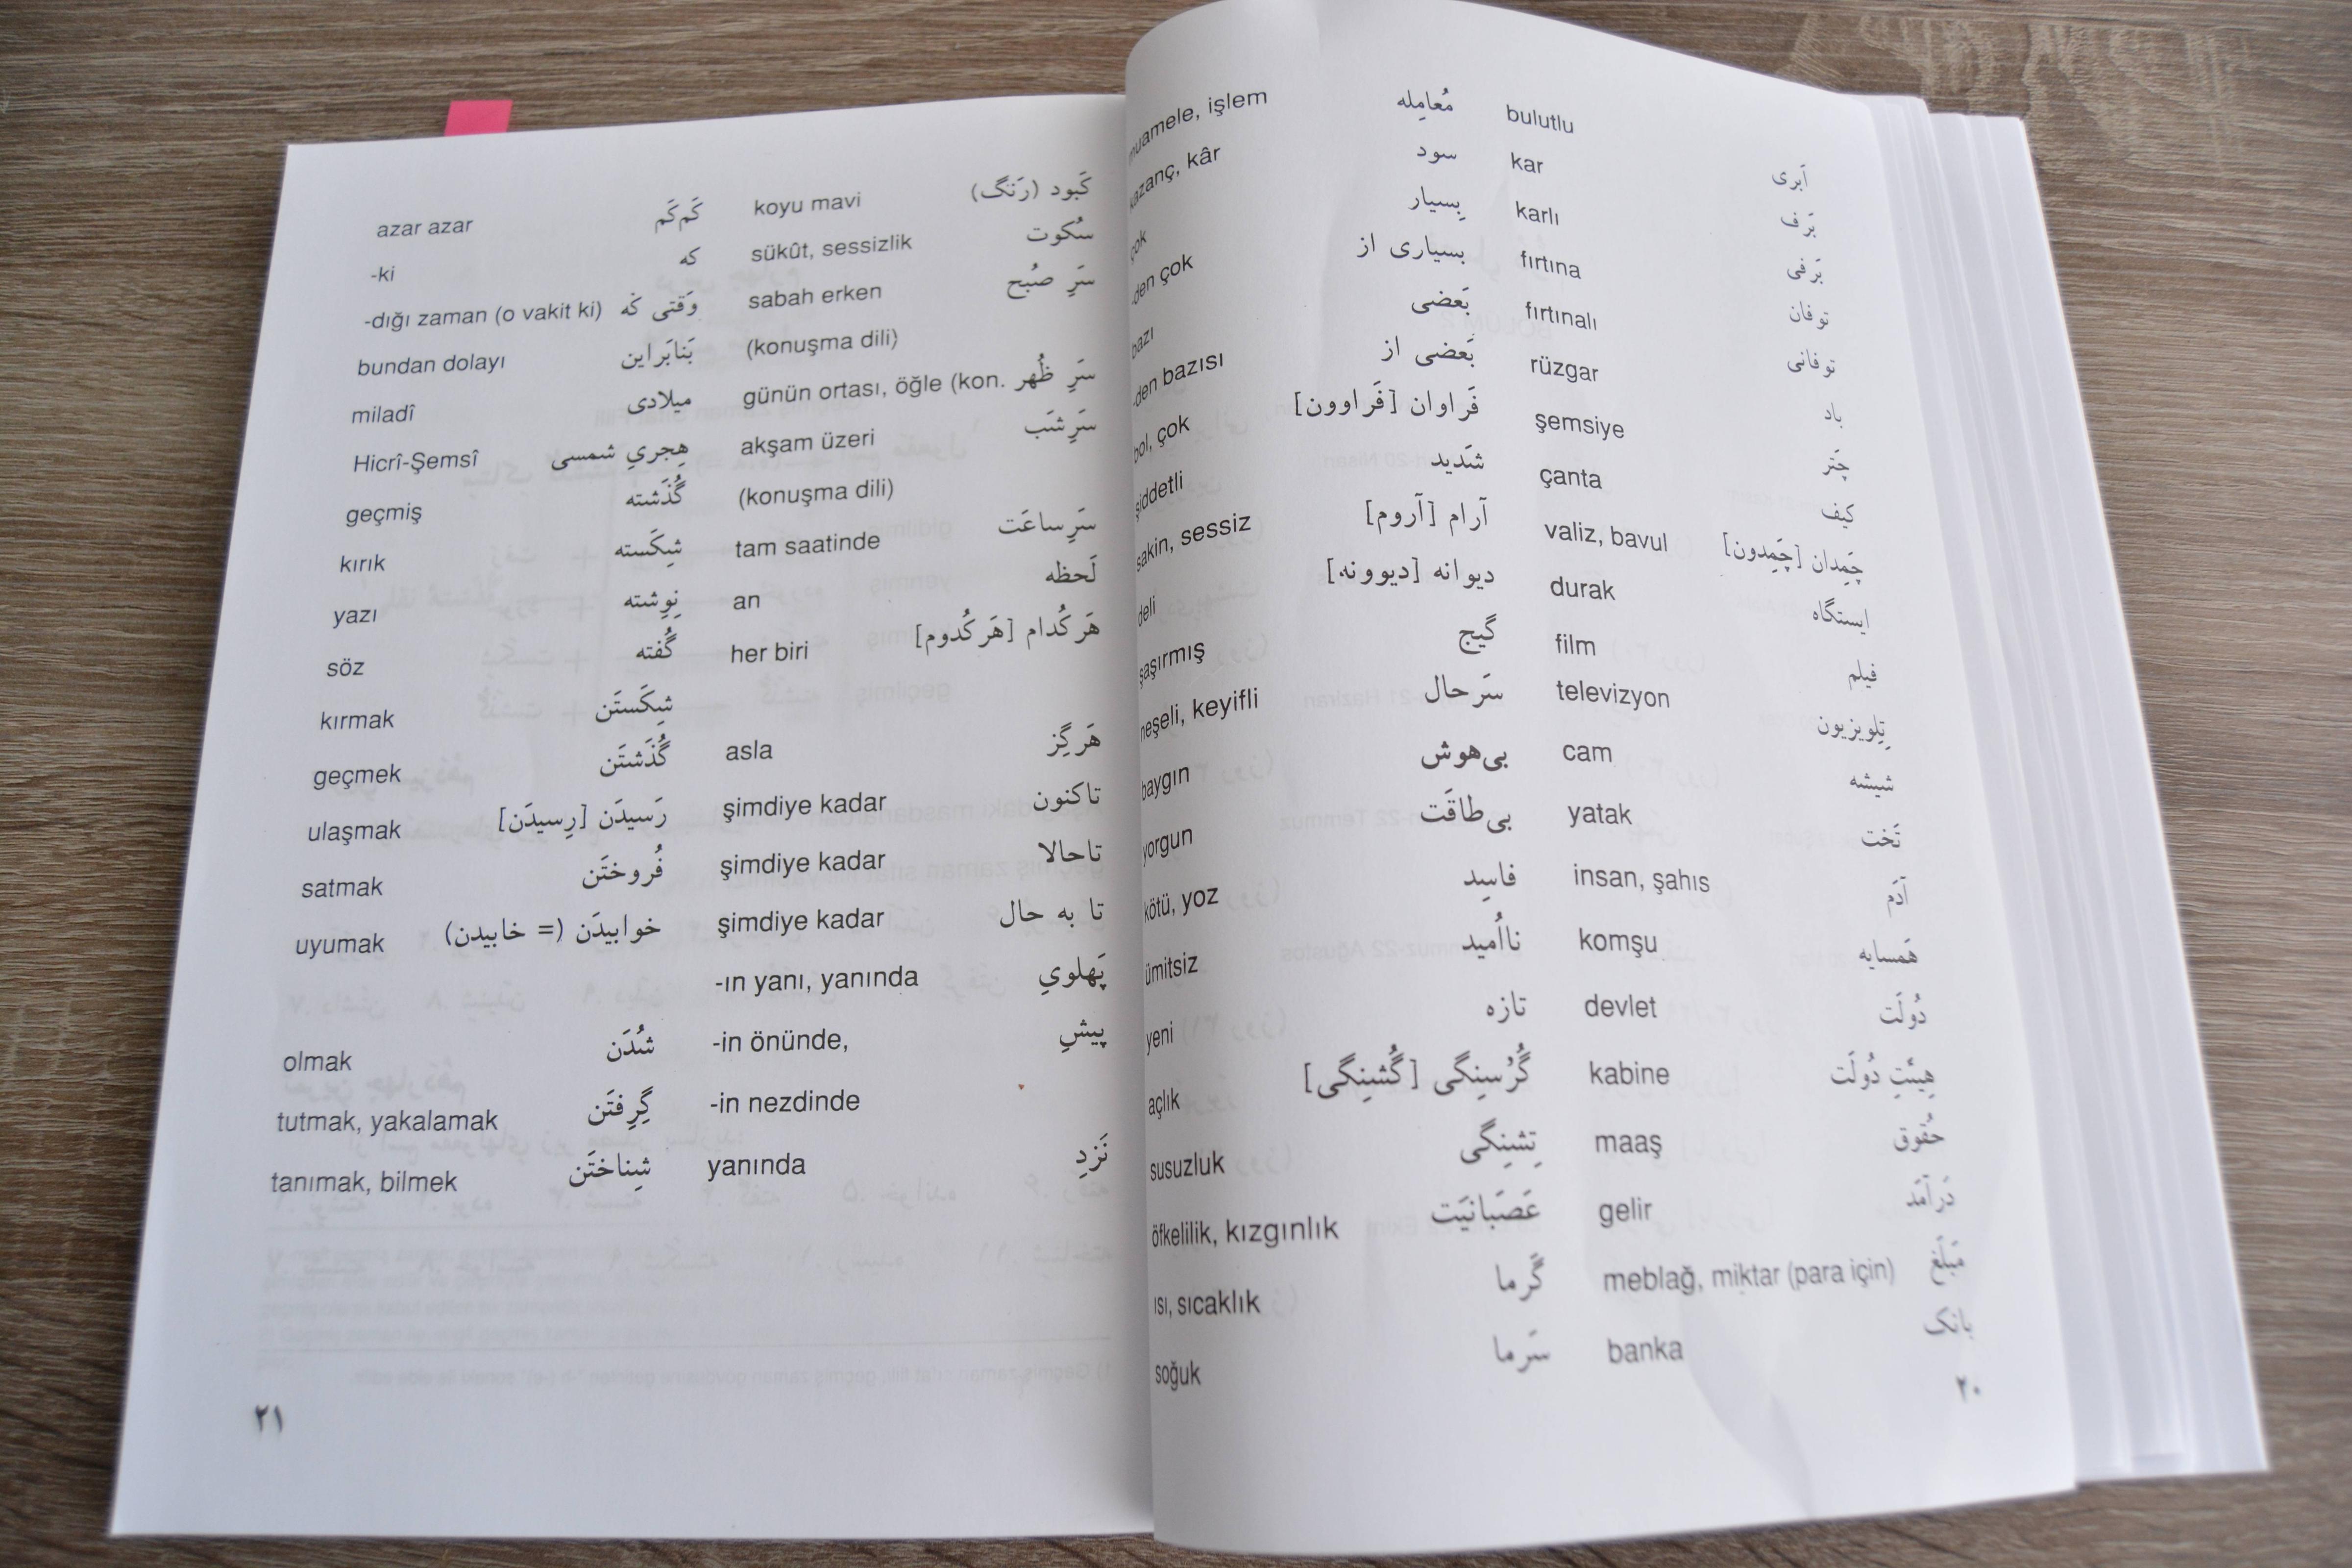 اَبری bulutlu
بَرف kar
بَرفی karlı
توفان fırtına
توفانی fırtınalı
باد rüzgar
چَتر şemsiye
کیف çanta
چَمِدان [چَمِدون] valiz, bavul
ایستگاه durak
فیلم film
تِلِویزیون televizyon
شیشه cam
تَخت yatak
آدَم insan, şahıs
هَمسایه komşu
دُولَت devlet
هِیئَتِ دُولَت kabine
حُقوق maaş
دَرآمَد gelir
مَبلَغ meblağ, miktar (para için)
بانک banka
مُعامِله muamele, işlem
سود kazanç, kâr
بِسیار çok
بسیاری از -den çok
بَعضی bazı
بَعضی از -den bazısı
فَراوان [فَراوون] bol, çok
شَدید şiddetli
آرام [آروم] sakin, sessiz
دیوانه [دیوونه] deli
گیج şaşırmış
سَرحال neşeli, keyifli
بی‌هوش baygın
بی‌طاقَت yorgun
فاسِد kötü, yoz
نااُمید ümitsiz
تازه yeni
گُرُسِنِگی [گُشنِگی] açlık
تِشنِگی susuzluk
عَصَبانیَت öfkelilik, kızgınlık
گَرما ısı, sıcaklık
سَرما soğuk
۲۰
کَبود (رَنگ) koyu mavi
سُکوت sükût, sessizlik
سَرِ صُبح sabah erken
(konuşma dili)
سَرِ ظُهر günün ortası, öğle (kon.
سَرِشَب akşam üzeri
(konuşma dili)
سَرِساعَت tam saatinde
لَحظه an
هَرکُدام [هَرکُدوم] her biri
هَرگِز asla
تاکنون şimdiye kadar
تاحالا şimdiye kadar
تا به حال şimdiye kadar
پَهلویِ -ın yanı, yanında
پیشِ -in önünde,
-in nezdinde
نَزدِ yanında
کَم‌کَم azar azar
که -ki
وَقتی که -dığı zaman (o vakit ki)
بَنابَراین bundan dolayı
میلادی miladî
هِجریِ شمسی Hicrî-Şemsî
گُذَشته geçmiş
شِکَسته kırık
نِوِشته yazı
گُفته söz
شِکَستَن kırmak
گُذَشتَن geçmek
رَسیدَن [رِسیدَن] ulaşmak
فُروختَن satmak
خوابیدَن (= خابیدن) uyumak
شُدَن olmak
گِرِفتَن tutmak, yakalamak
شِناختَن tanımak, bilmek
۲۱